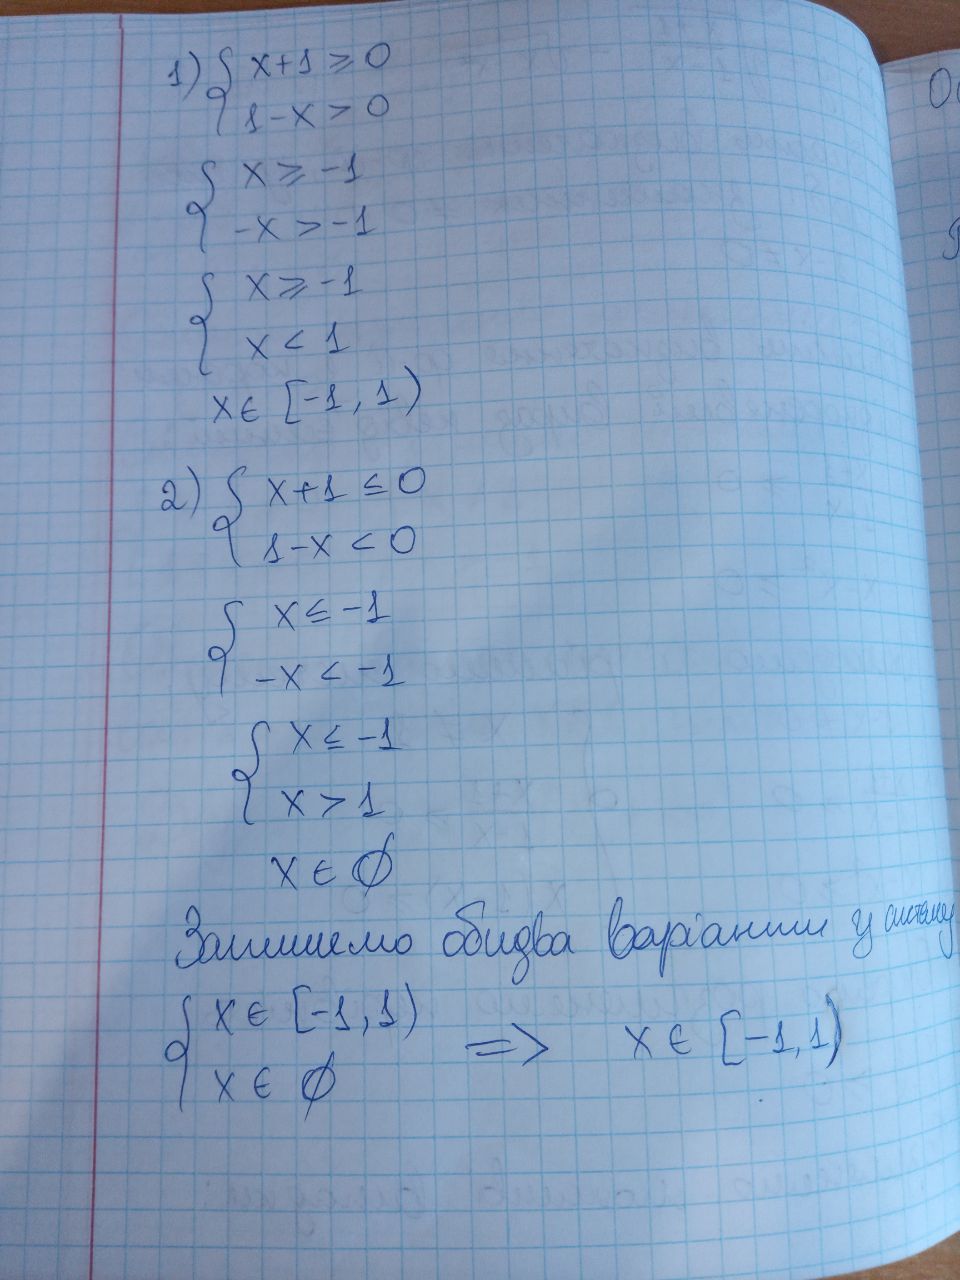 1) { x+1 ≥ 0
1-x > 0
{ x ⩾ -1
-x > -1
{ x ⩾ -1
x < 1
x ∈ [-1, 1)
2) { x+1 ≤ 0
1-x < 0
{ x ≤ -1
-x < -1
{ x ≤ -1
x > 1
x ∈ ∅
Запишемо обидва варіанти у систему
{ x ∈ [-1, 1)
x ∈ ∅
=> x ∈ [-1, 1)